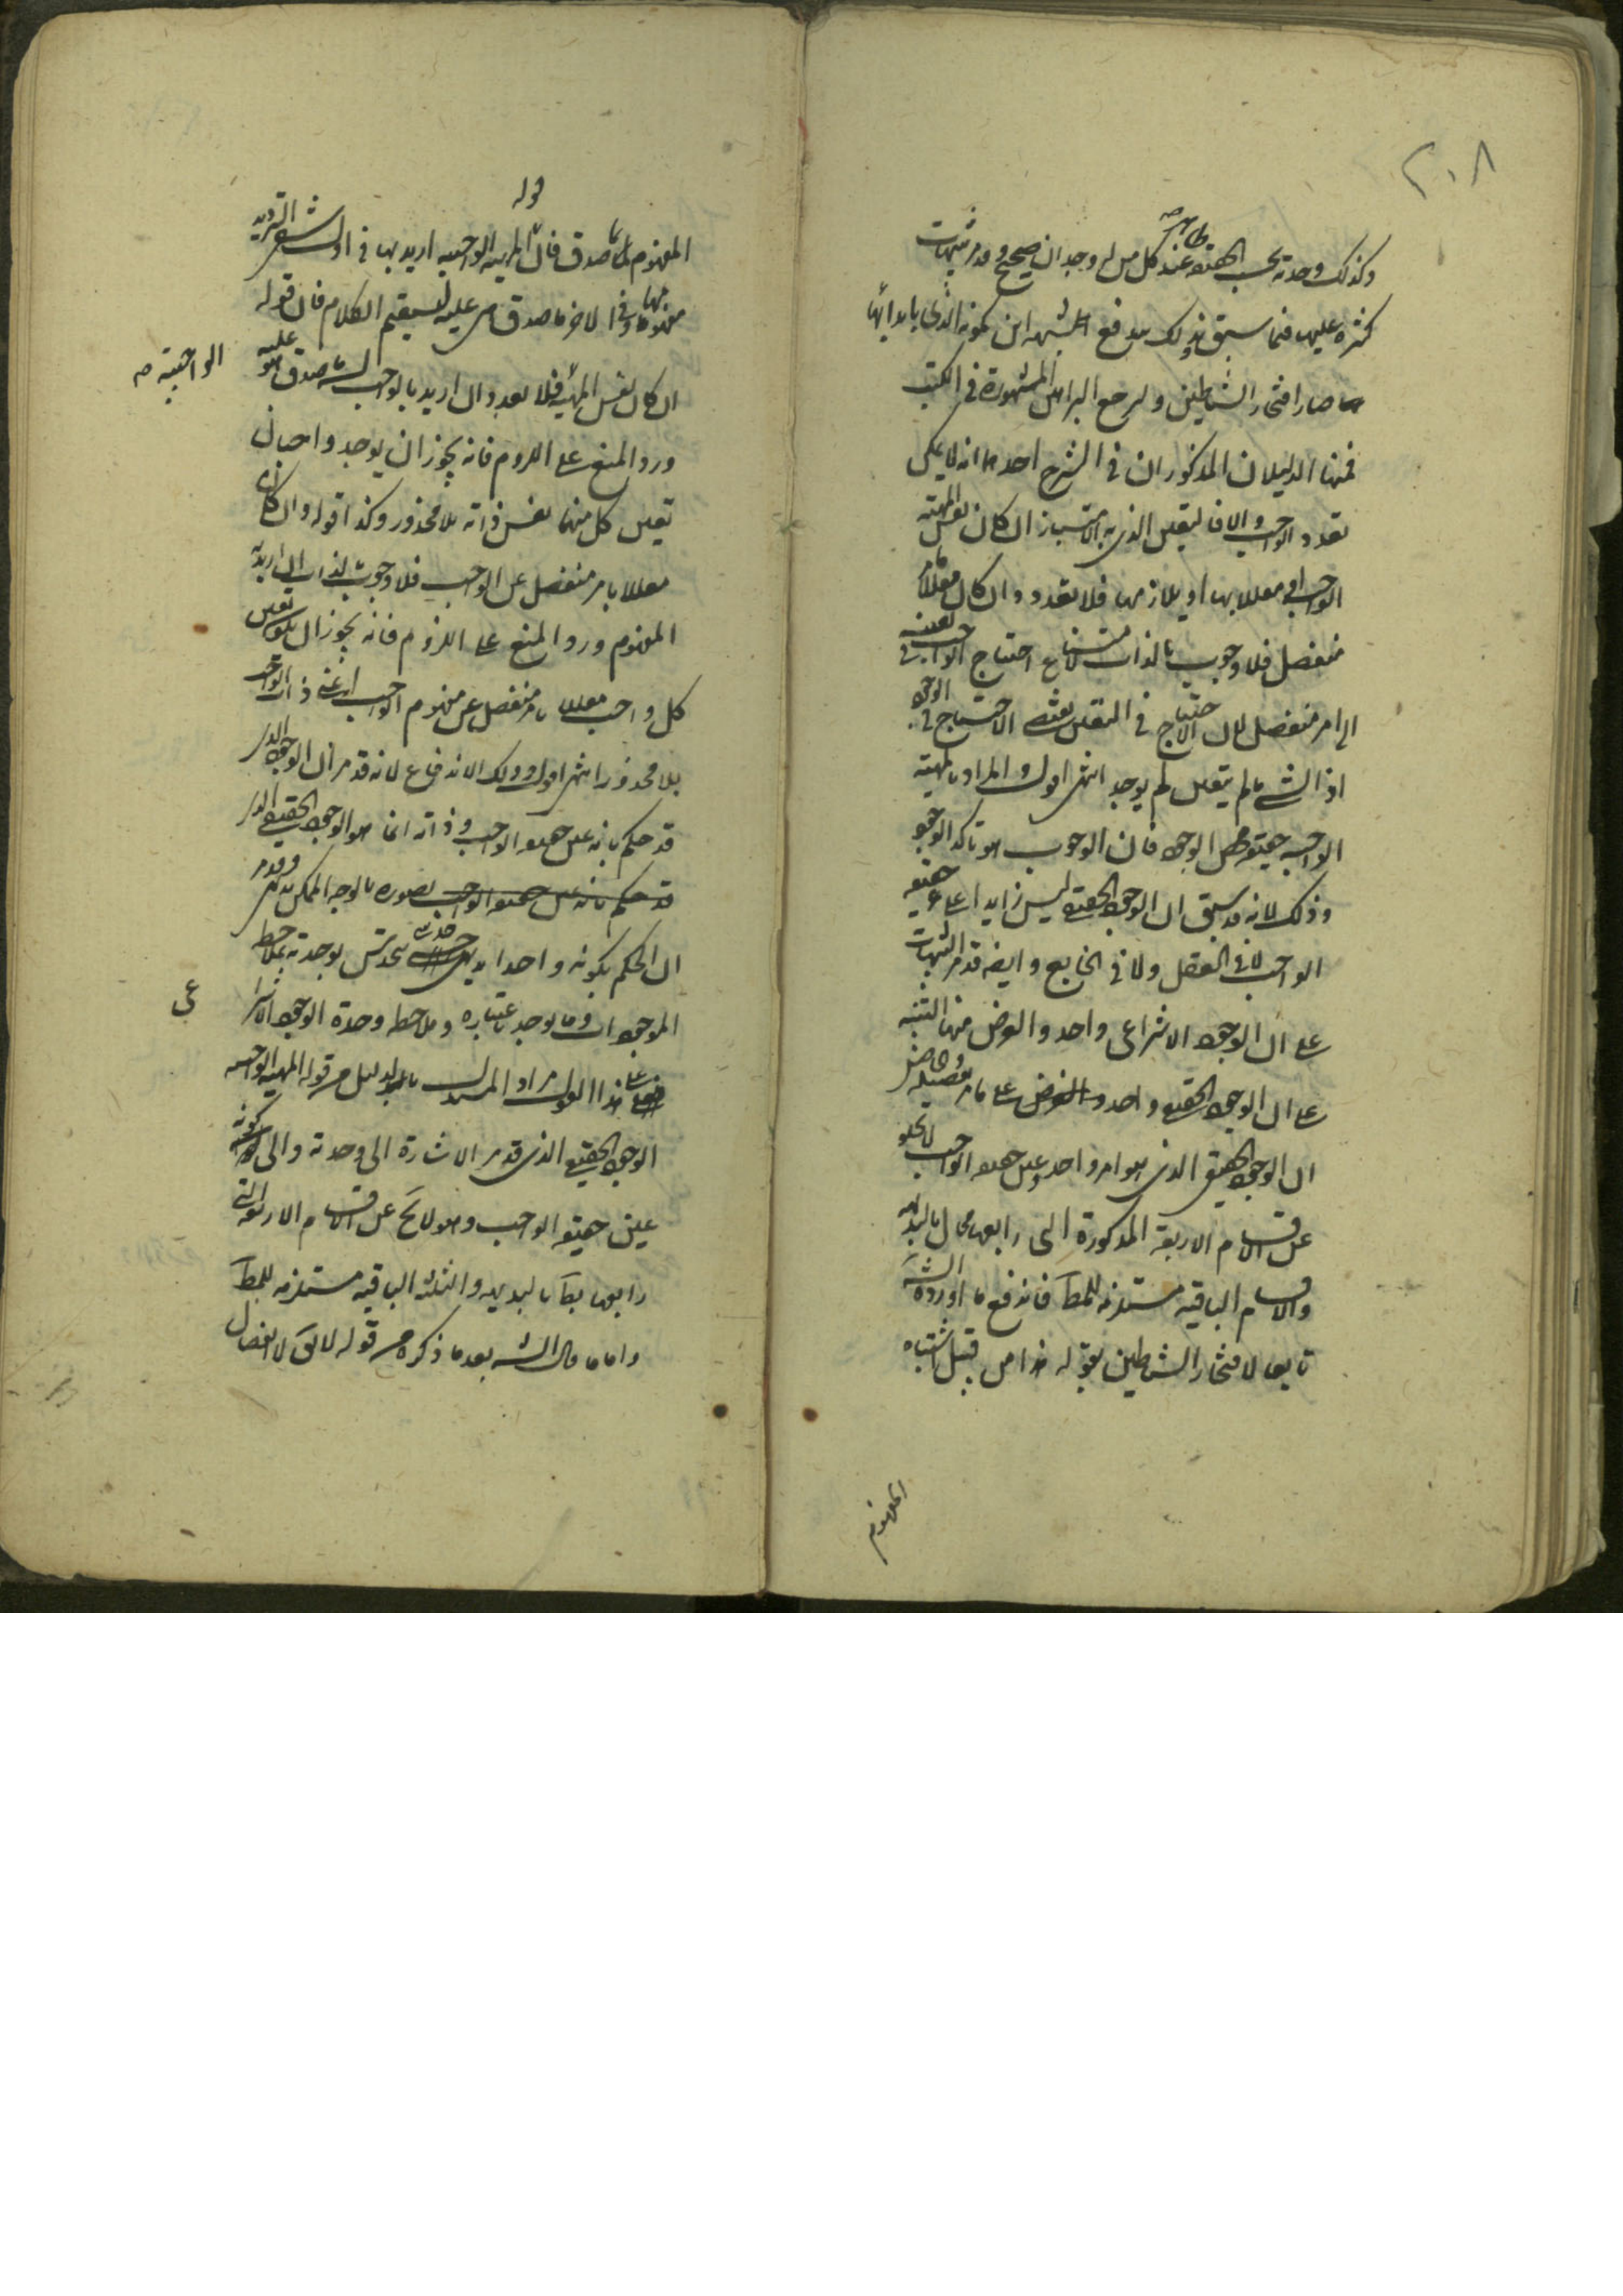 ٢٠٨
وكذلك وحدته بحسب الحقيقة ظاهرة عند كل من له وجدان صحيح وقد مر تنبيهات
كثيرة عليها فيما سبق بذلك يندفع الشبهة ابن كمونه الذي بابدائها
صار افتخار الشياطين ولنرجع البراهين المشهورة في الكتب
فمنها الدليلان المذكوران في الشرح احدهما انه لا يمكن
تعدد الواجب والا فالتعين الذي به الامتياز ان كان نفس المهية
الواجبة او معللا بها او بلازمها فلا تعدد وان كان معللا بامر
منفصل فلا وجوب بالذات لامتناع احتياج الواجب في تعينه
الى امر منفصل لان الاحتياج في التعين يقتضي الاحتياج في الوجود
اذ الشيء ما لم يتعين لم يوجد انتهى اقول المراد بالمهية
الواجبة حقيقة محض الوجود فان الوجوب هو تاكد الوجود
وذلك لانه قد سبق ان الوجود الحقيقي ليس زايدا على حقيقة
الواجب لا في العقل ولا في الخارج وايضا قد مر التنبيهات
على ان الوجود الانتزاعي واحد والغرض منها التنبيه
على ان الوجود الحقيقي واحد والغرض على ما مر تفصيله
ان الوجود الحقيقي الذي هو امر واحد وعين حقيقة الواجب لا يخلو
عن الاقسام الاربعة المذكورة التي رابعها محال بالبديهة
والاقسام الباقية مستلزمة للمط فاندفع ما اورده الش
تابعا لافتخار الشياطين بقوله هذا من قبيل اشتباه
المفهوم
قوله
المفهوم بما صدق فان المهية الواجبة اريد بها في اول شقي الترديد
مفهومها وفي الاخر ما صدق هي عليه ليستقيم الكلام فان قوله
ان كان نفس المهية فلا تعدد ان اريد بالواجب ما صدق عليه
الواجبية صح
ورد المنع على اللزوم فانه يجوز ان يوجد واجبان
تعين كل منهما نفس ذاته بلا محذور وكذا قوله وان كان
معللا بامر منفصل عن الواجب فلا وجوب بالذات ان اريد به
المفهوم ورد المنع على اللزوم فانه يجوز ان يكون تعين
كل واجب معللا بامر منفصل عن مفهوم الواجب اعني ذات الواجب
بلا محذور انتهى اقول وذلك الاندفاع لانه قد مر ان الوجود الذي
قد حكم بانه عين حقيقة الواجب وذاته انما هو الوجود الحقيقي الذي
تصوره بالوجه الممكن بديهي وقد مر
ان الحكم بكونه واحدا بديهي حدسي يحدس بوحدته بملاحظة
الموجودات وما يوجد باعتباره وملاحظة وحدة الوجود الانتزاعي
فعلى هذا القول مراد المستدل بالدليل من قوله المهية الواجبة
الوجود الحقيقي الذي قد مر الاشارة الى وحدته والى كونه
عين حقيقة الواجب وهو لا يخ عن الاقسام الاربعة التي
رابعها بط بالبديهة والثلثة الباقية مستلزمة للمط
واما ما قال الش بعد ما ذكره من قوله لا يق لا انفصال